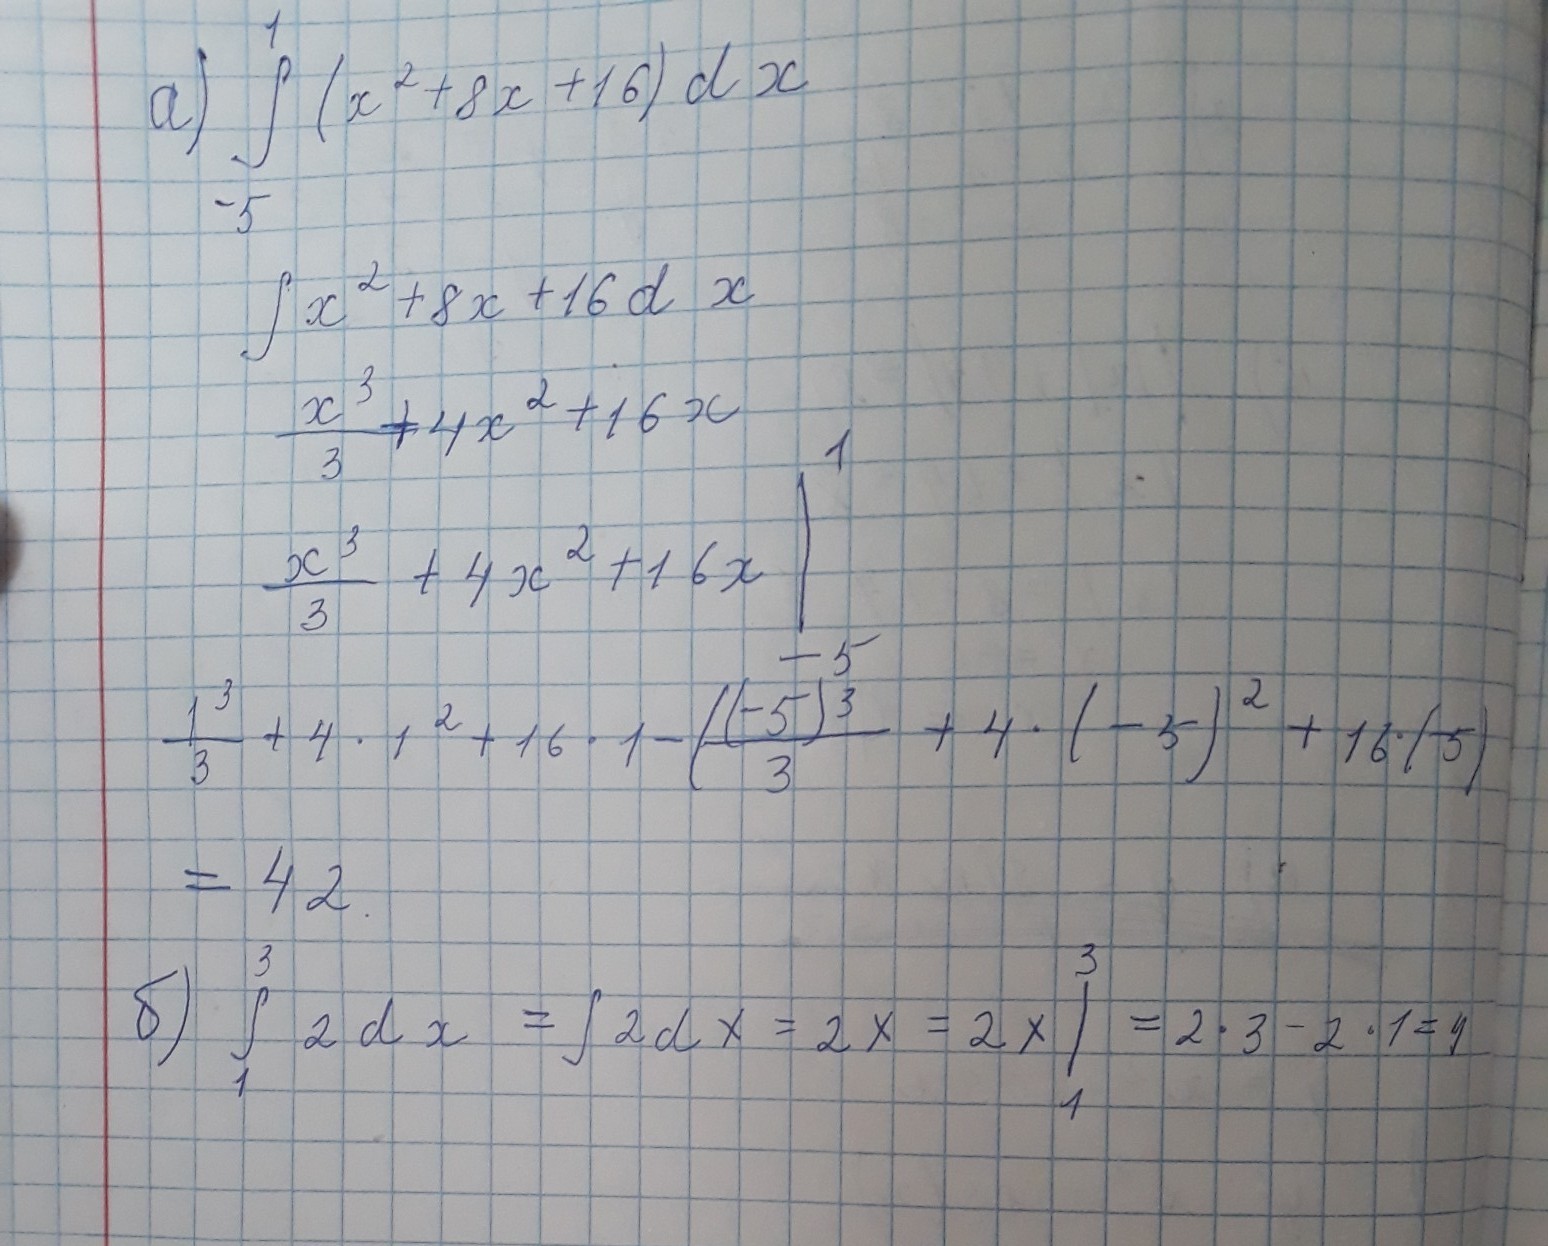 а) ∫₋₅¹ (x² + 8x + 16) dx
∫ x² + 8x + 16 dx
x³/3 + 4x² + 16x
x³/3 + 4x² + 16x |₋₅¹
1³/3 + 4 · 1² + 16 · 1 - ((-5)³/3 + 4 · (-5)² + 16 · (-5)
= 42.
б) ∫₁³ 2 dx = ∫ 2dx = 2x = 2x |₁³ = 2 · 3 - 2 · 1 = 4